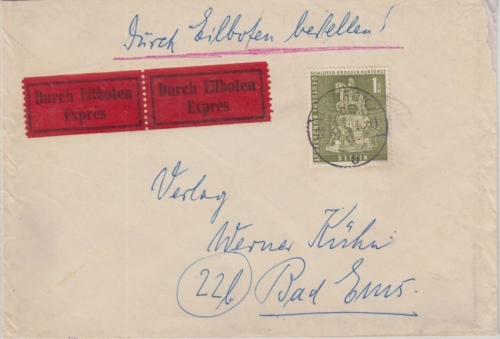 Durch Eilboten bestellen!
Durch Eilboten
Exprès
Durch Eilboten
Exprès
SCHLÜTER: GROSSER KURFÜRST
1
DEUTSCHE BUNDESPOST
BERLIN
Verlag
Werner Kühn
22b Bad Ems.